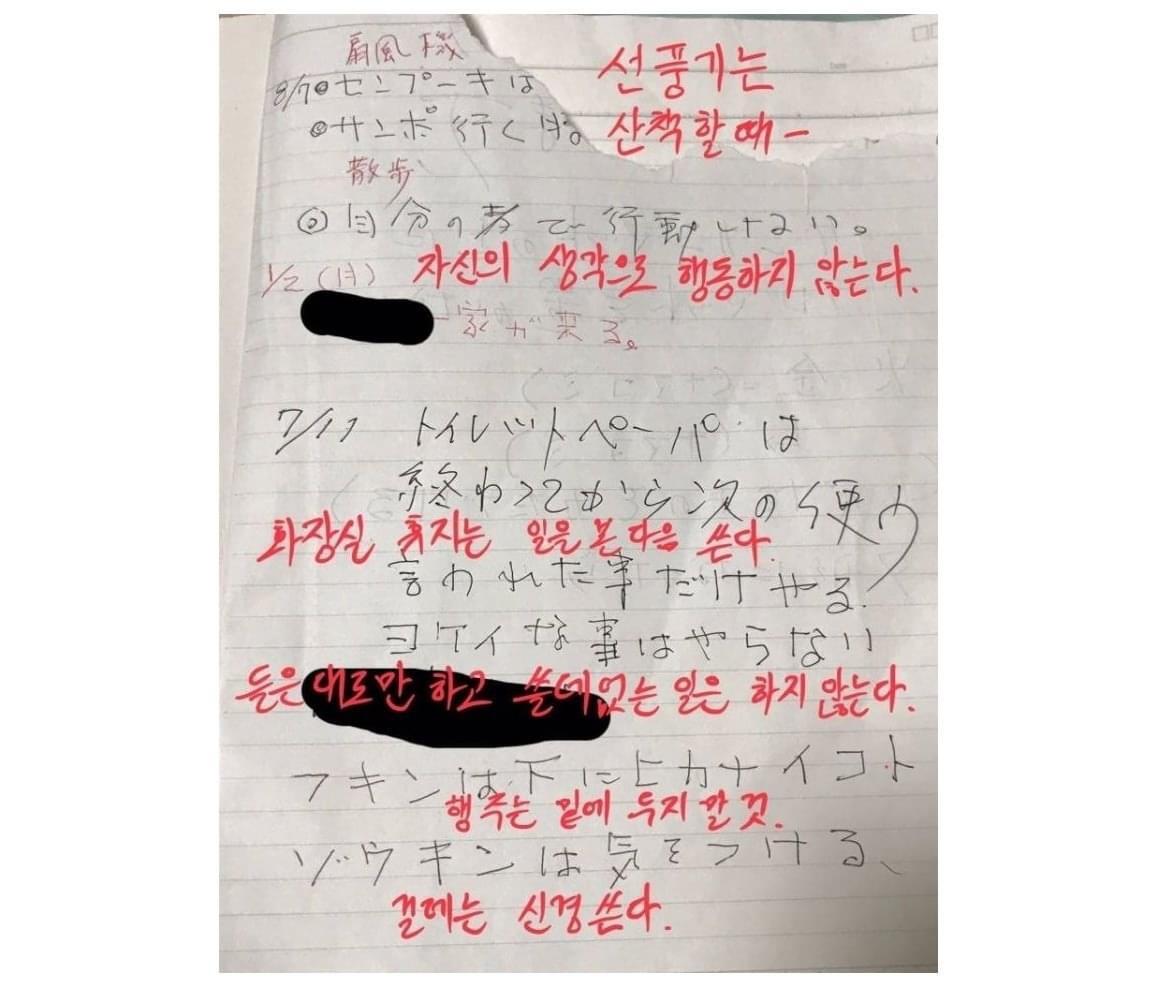 扇風機
8/7◎センプーキは 선풍기는
◎サンポ行く时。 산책할 때-
散歩
◎自分の考で行動しない。
자신의 생각으로 행동하지 않는다.
1/2(月)
一家が来る。
7/17 トイレットペーパは
終わってから次の使う
화장실 휴지는 일을 본 다음 쓴다.
言われた事だけやる.
ヨケイな事はやらない
듣은 대로만 하고 쓸데없는 일은 하지 않는다.
フキンは下にヒカナイコト
행주는 밑에 두지 말 것.
ゾウキンは気をつける、
걸레는 신경쓴다.